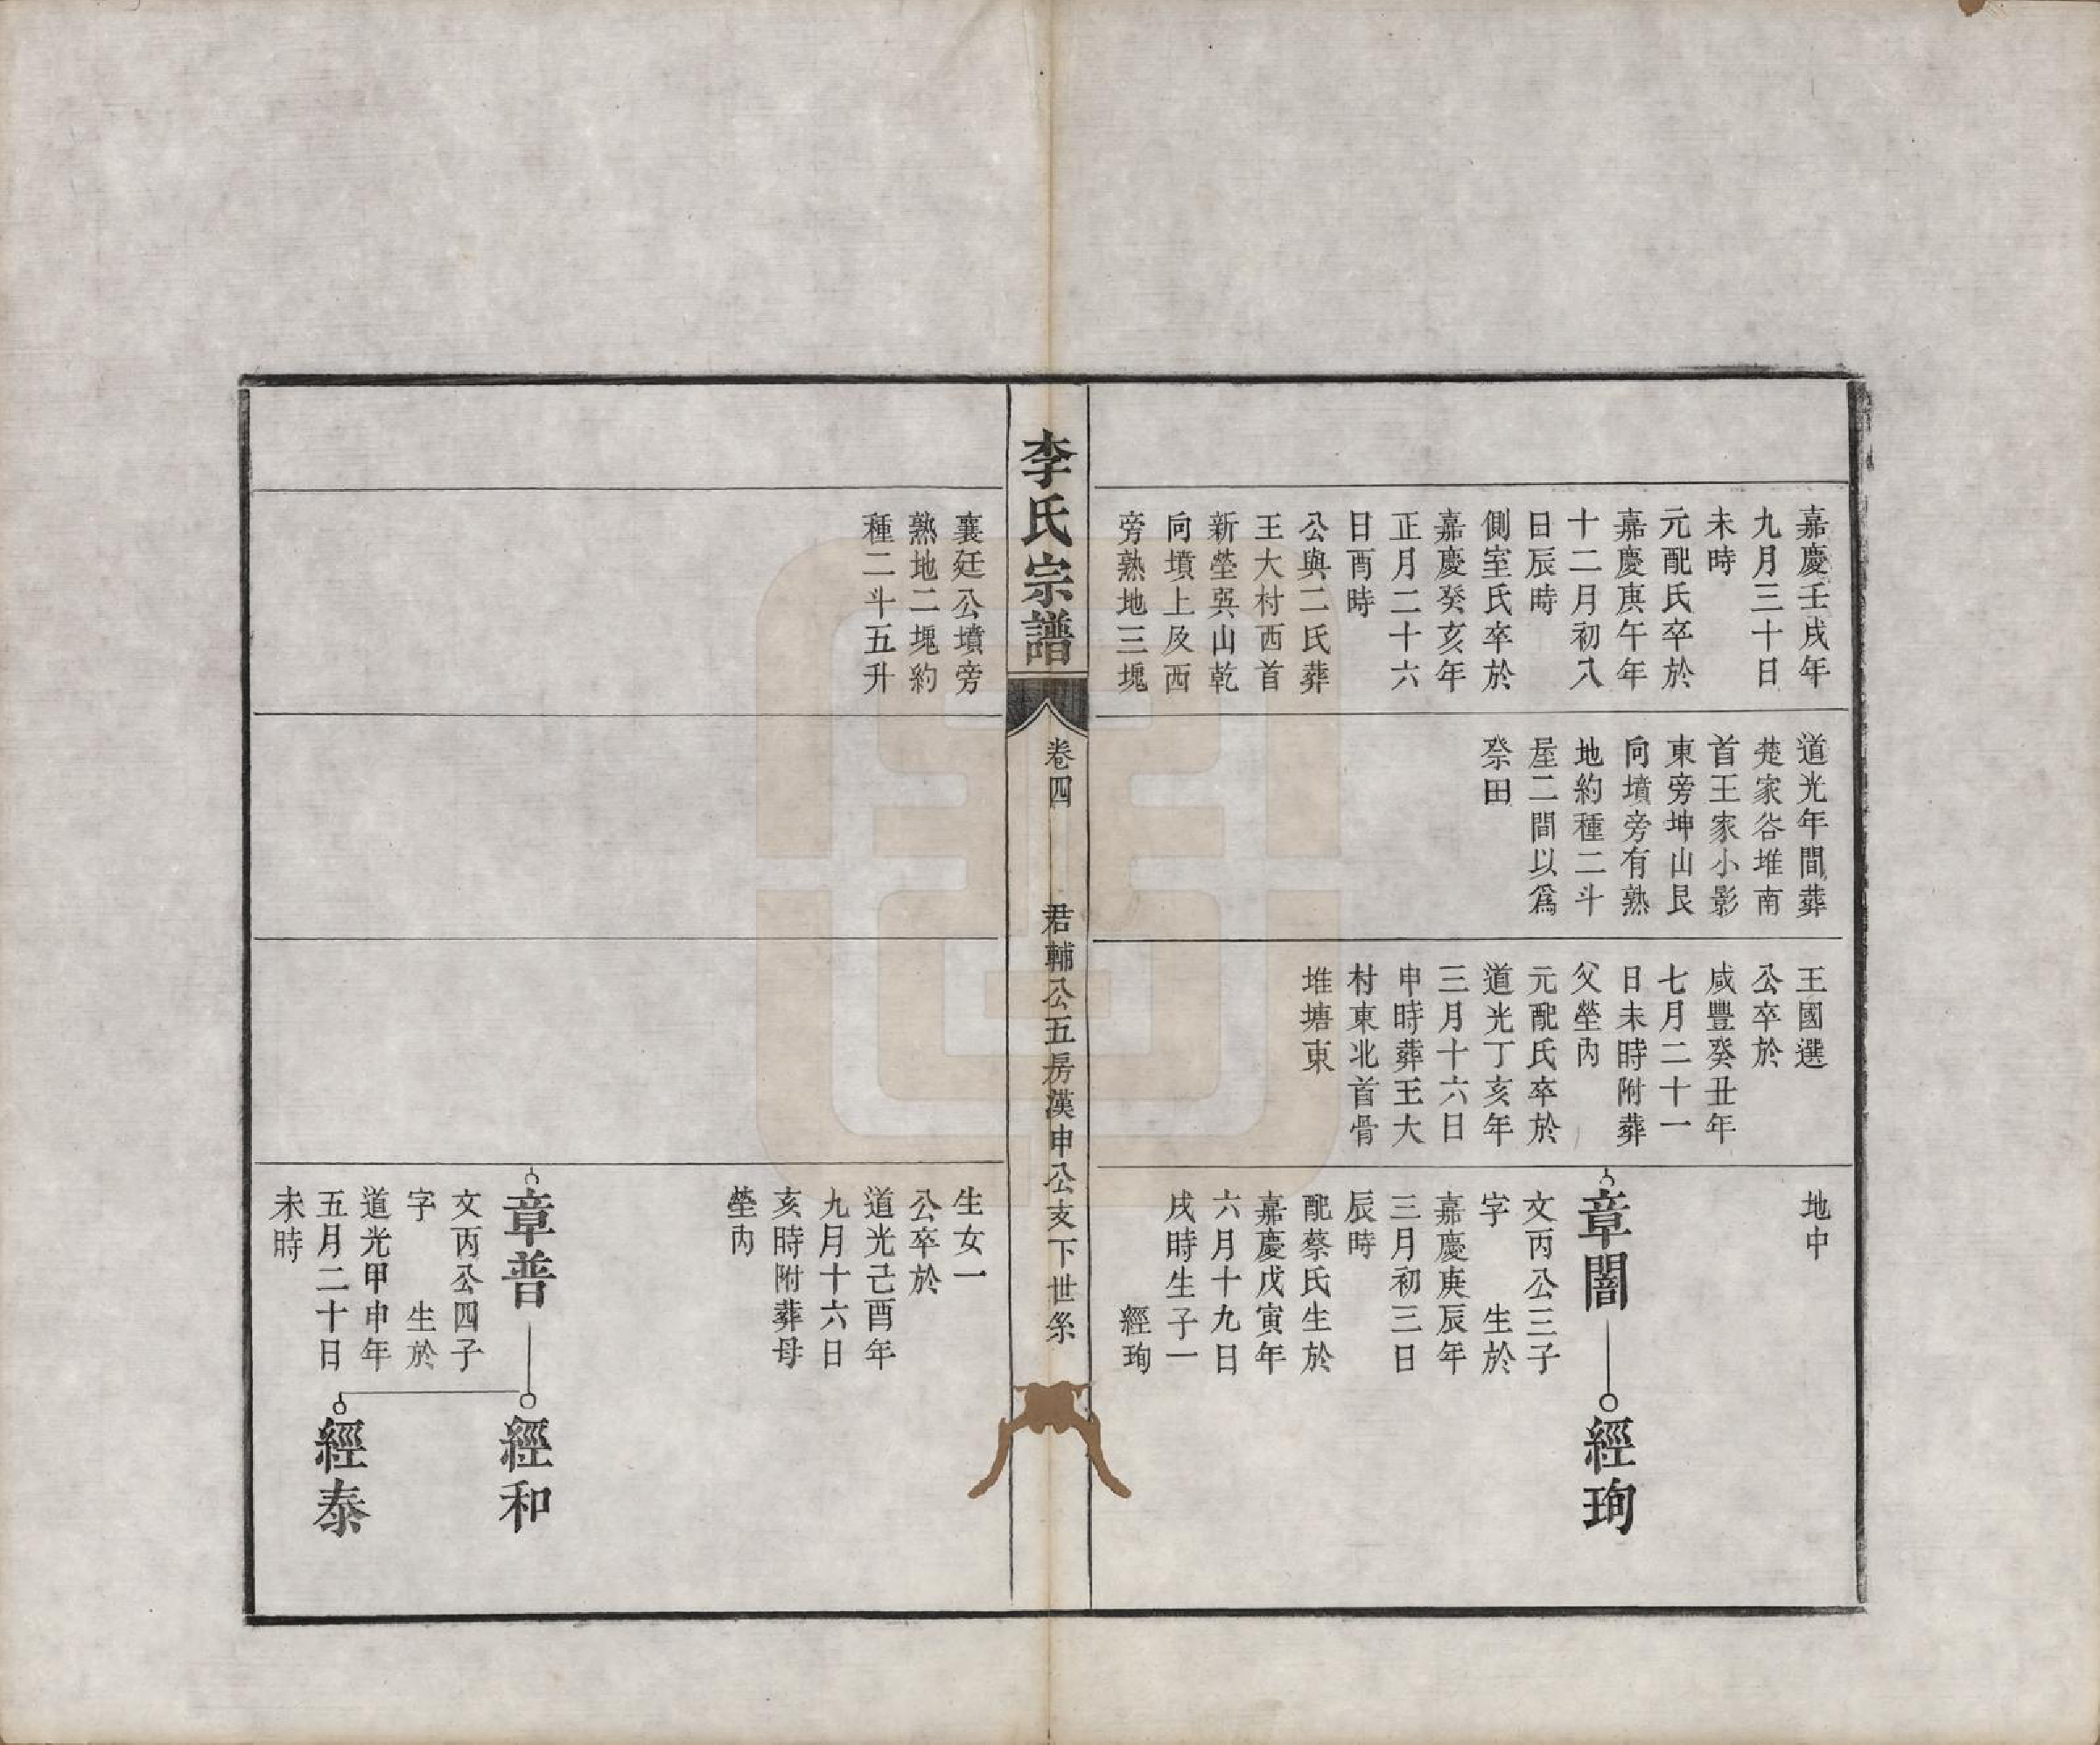 嘉慶壬戌年
九月三十日
未時
元配氏卒於
嘉慶庚午年
十二月初八
日辰時
側室氏卒於
嘉慶癸亥年
正月二十六
日酉時
公與二氏葬
王大村西首
新塋巽山乾
向墳上及西
旁熟地三塊
道光年間葬
楚家谷堆南
首王家小影
東旁坤山艮
向墳旁有熟
地約種二斗
屋二間以爲
祭田
王國選
公卒於
咸豐癸丑年
七月二十一
日未時附葬
父塋內
元配氏卒於
道光丁亥年
三月十六日
申時葬王大
村東北首骨
堆塘東
地中
章闇
經珣
文丙公三子
字 生於
嘉慶庚辰年
三月初三日
辰時
配蔡氏生於
嘉慶戊寅年
六月十九日
戌時生子一
經珣
李氏宗譜
卷四
君輔公五房漢申公支下世系
襄廷公墳旁
熟地二塊約
種二斗五升
生女一
公卒於
道光己酉年
九月十六日
亥時附葬母
塋內
章普
經和
文丙公四子
字 生於
道光甲申年
五月二十日
未時
經泰